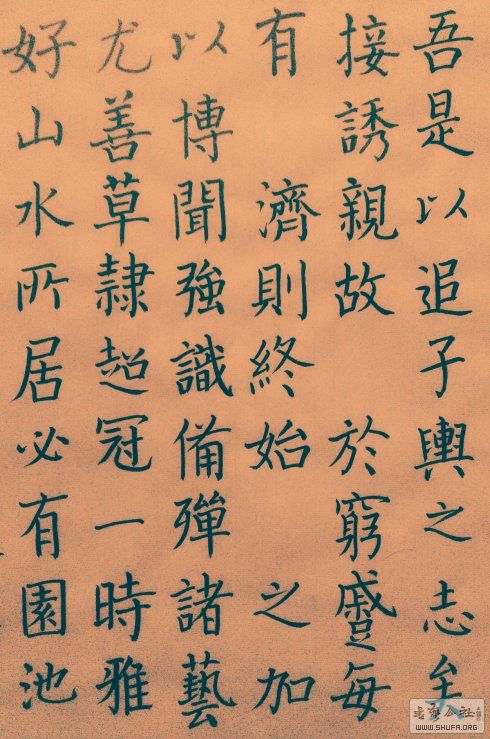 吾是以追子輿之志至
接誘親故於窮蹙每
有濟則終始之加
以博聞強識備殫諸藝
尤善草隸超冠一時雅
好山水所居必有園池
WWW.SHUFA.ORG